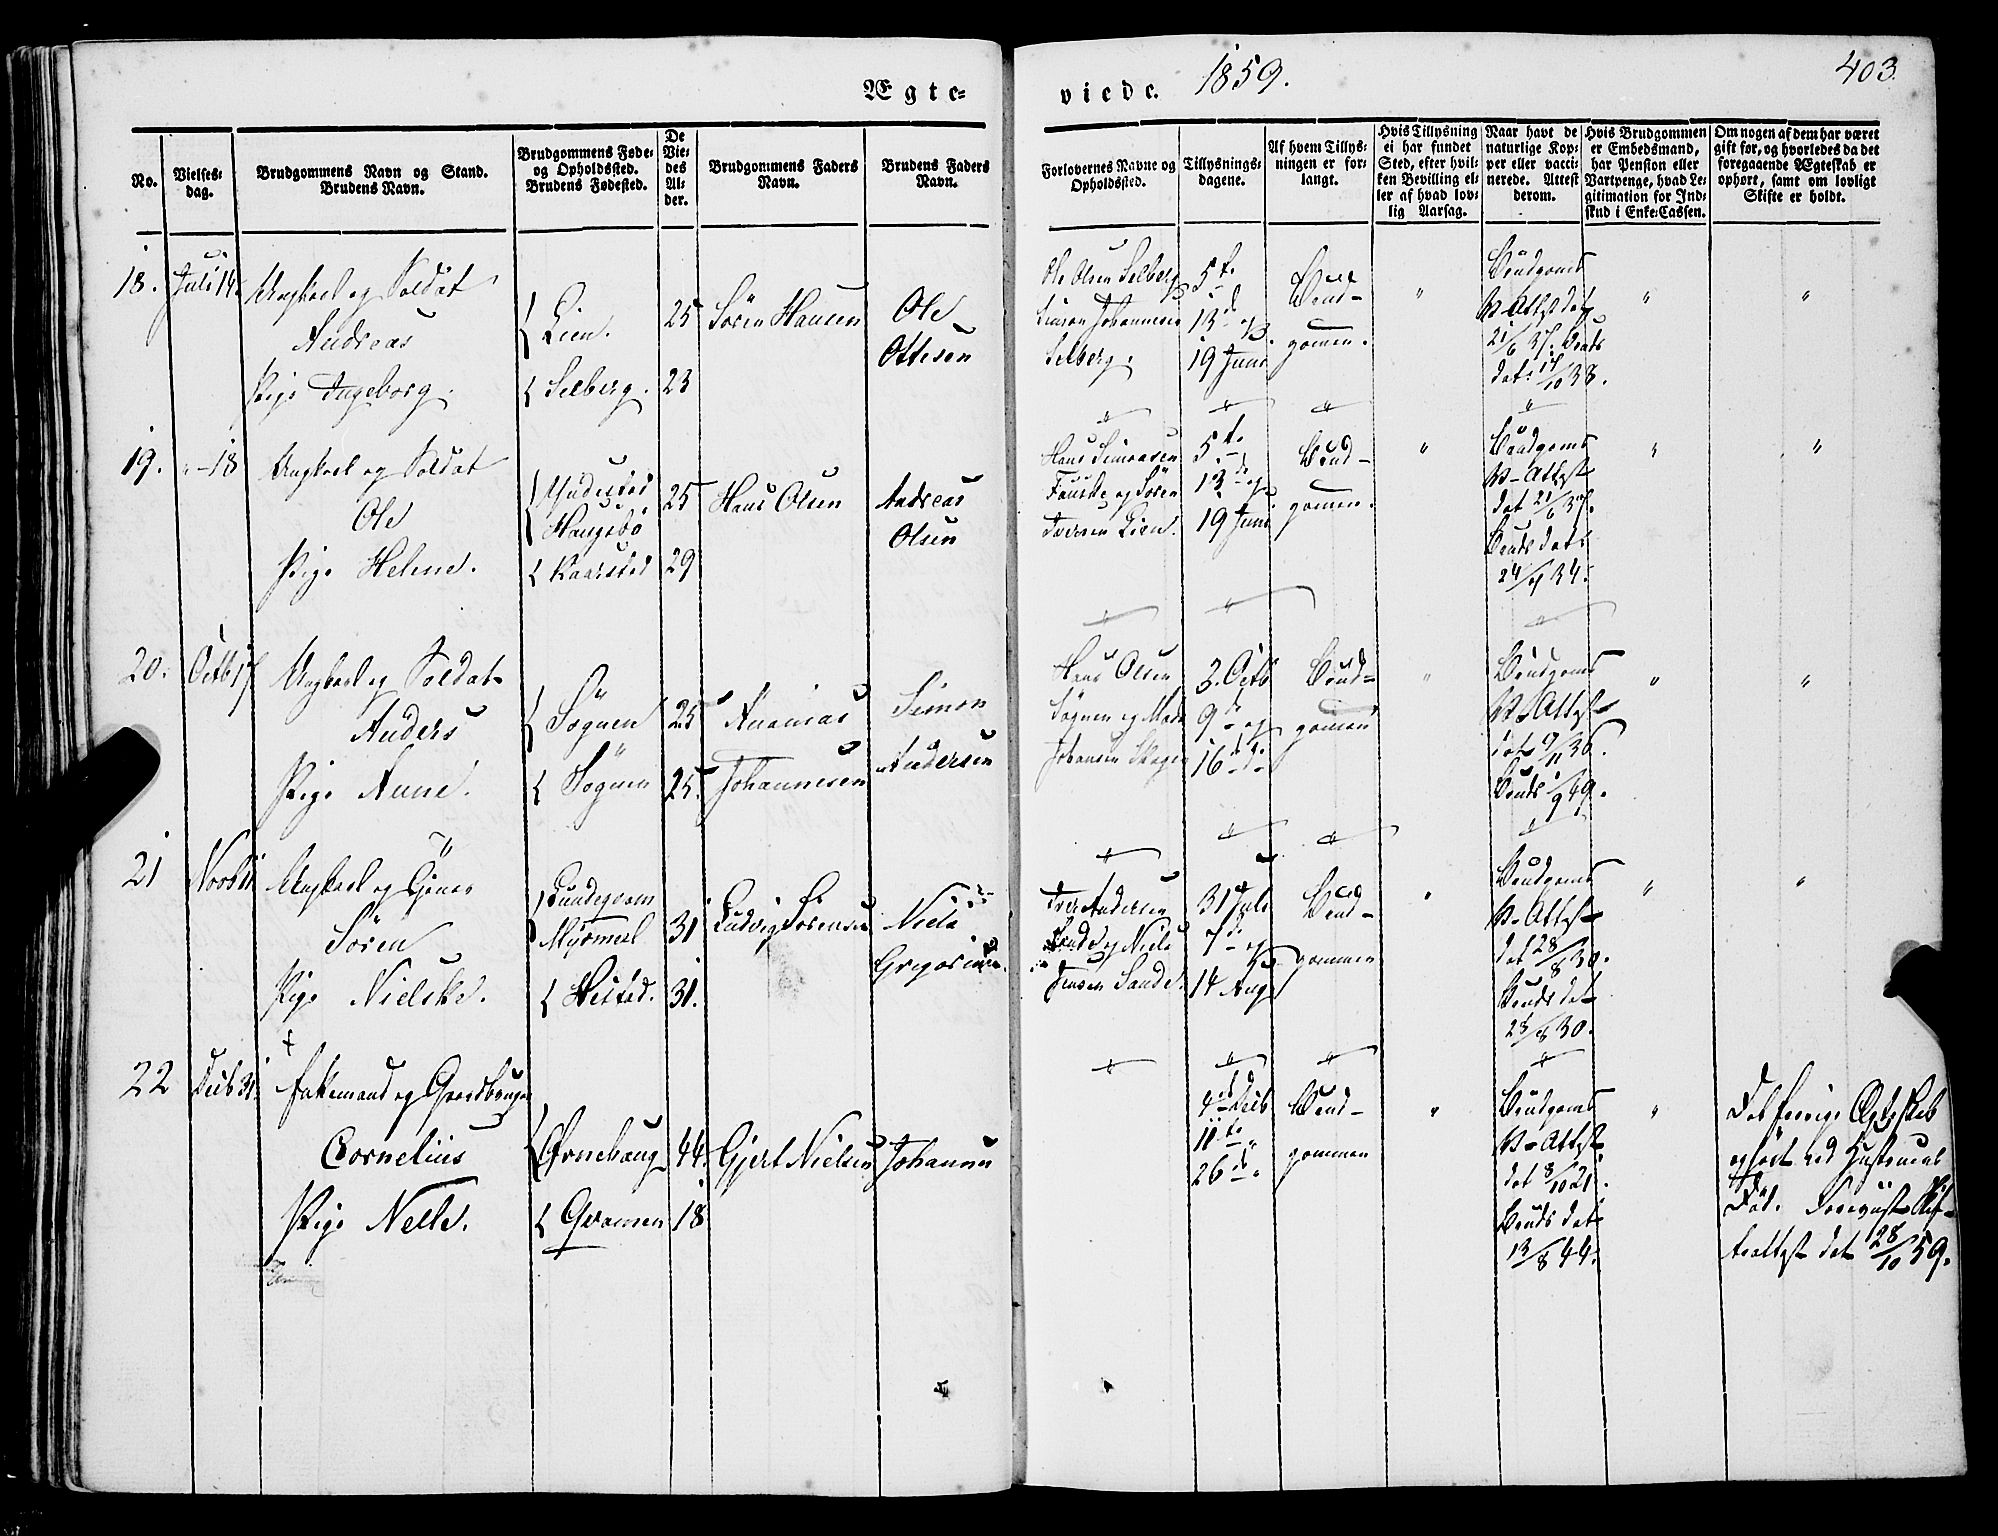 Ægte=
viede.
1859.
403.
No.
Vielses=
dag.
Brudgommens Navn og Stand.
Brudens Navn.
Brudgommens Føde=
og Opholdssted.
Brudens Fødested.
De
Vie=
des
Al=
der.
Brudgommens Faders
Navn.
Brudens Faders
Navn.
Forlovernes Navne og
Opholdssted.
Tillysnings=
dagene.
Af hvem Tillys=
ningen er for=
langt.
Hvis Tillysning
ei har fundet
Sted, efter hvil=
ken Bevilling el=
ler af hvad lov=
lig Aarsag.
Naar havt de
naturlige Kop=
per eller vacci=
nerede. Attest
derom.
Hvis Brudgommen
er Embedsmand,
har Pension eller
Vartpenge, hvad Le=
gitimation for Ind=
skud i Enke=Cassen.
Om nogen af dem har været
gift før, og hvorledes da det
foregaaende Ægteskab er
ophørt, samt om lovligt
Skifte er holdt.
18.
Juli 14.
Ungkarl og Soldat
Andreas
Pige Ingeborg.
Lien.
Selberg.
25
23
Sören Hansen
Ole
Ottesen
Ole Olsen Selberg
Simon Johannesen
Selberg.
5te
13de og
19 Juni
Brud-
gomen.
"
Brudgoms
V-Attest dat
21/6 37. Bruds
dat: 17/10 38.
"
"
19.
"-18
Ungkarl og Soldat
Ole
Pige Helene.
Haugebö
Kaarsted
25
29
Hans Olsen
Andreas
Olsen
Hans Simonsen
Fauske og Sören
Iversen Lien.
5te
13de og
19 Juni
Brud-
gomen.
"
Brudgoms
V-Attest
dat 21/6 37.
Bruds dat:
24/9 34.
"
"
20.
Octb 17
Ungkarl og Soldat
Anders
Pige Anne.
Sögnen
Sögnen
25
25.
Ananias
Johannesen
Simon
Andersen
Hans Olsen
Sögnen og Mads
Johansen Skogen
2. Octb
9de og
16de
Brud-
gomen
"
Brudgoms
V-Attest
dat 9/11 36.
Bruds 1/9 49.
"
"
21
Novb 11
Ungkarl og
Sören
Pige Nielske.
Myrmel
Hestad.
31
31.
Ludvig Sörensen
Niels
Gregoriusen.
Iver Andersen
Sande og Niels
Jensen Sande.
31 Juli
7de og
14 Aug
Brud-
gommen
"
Brudgoms
V-Attest
dat 28/8 30.
Bruds dat
28/8 30.
"
"
22
Decb 31.
Enkemand og Gaardbruger
Cornelius
Pige Nelle.
Ørnehaug
Qvamen
44.
18
Gjert Nielsen
Johannes
4de Decb
11te "
26de "
Brud-
gommen
"
Brudgoms
V-Attest
dat 8/10 21.
Bruds dat
13/8 44.
"
Det forrige Ægteskab
ophört ved Hustruens
Död. Foreviist Skif-
teattest dat 28/10 59.